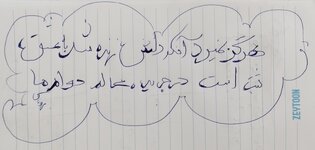 هرگز نمیرد آنکه دلش زنده شد با عشق
ثبت است در جریده عالم دوام ما
ZEYTOON